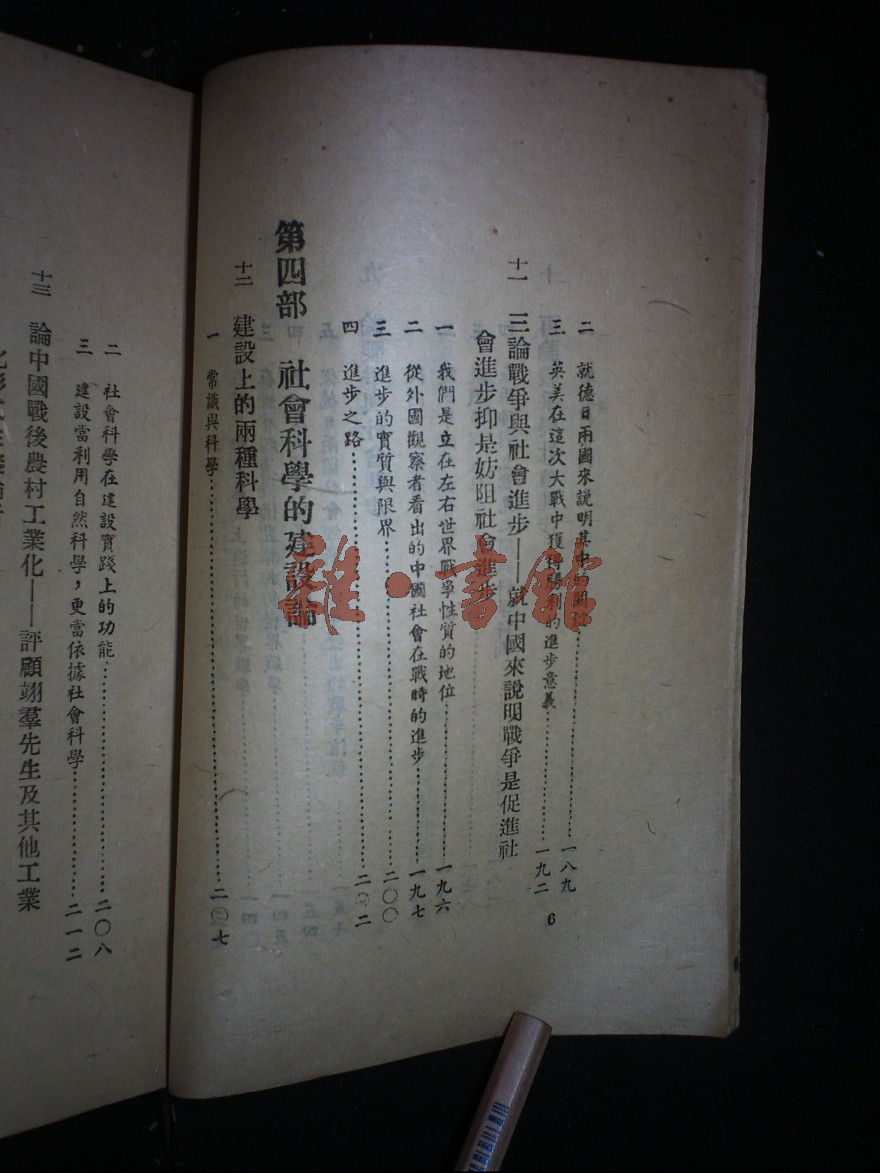 二 就德日兩國來說明其中的⋯⋯一八九
三 英美在這次大戰中獲得勝利的進步意義⋯⋯一九二
十一 三論戰爭與社會進步——就中國來說明戰爭是促進社
會進步抑是妨阻社會進步
一 我們是立在左右世界戰爭性質的地位⋯⋯一九六
二 從外國觀察者看出的中國社會在戰時的進步⋯⋯一九七
三 進步的實質與限界⋯⋯二〇〇
四 進步之路⋯⋯二〇二
第四部 社會科學的建設論
十二 建設上的兩種科學
一 常識與科學⋯⋯二〇七
6
二 社會科學在建設實踐上的功能⋯⋯二〇八
三 建設當利用自然科學，更當依據社會科學⋯⋯二一二
十三 論中國戰後農村工業化——評顧翊羣先生及其他工業
雜·書館